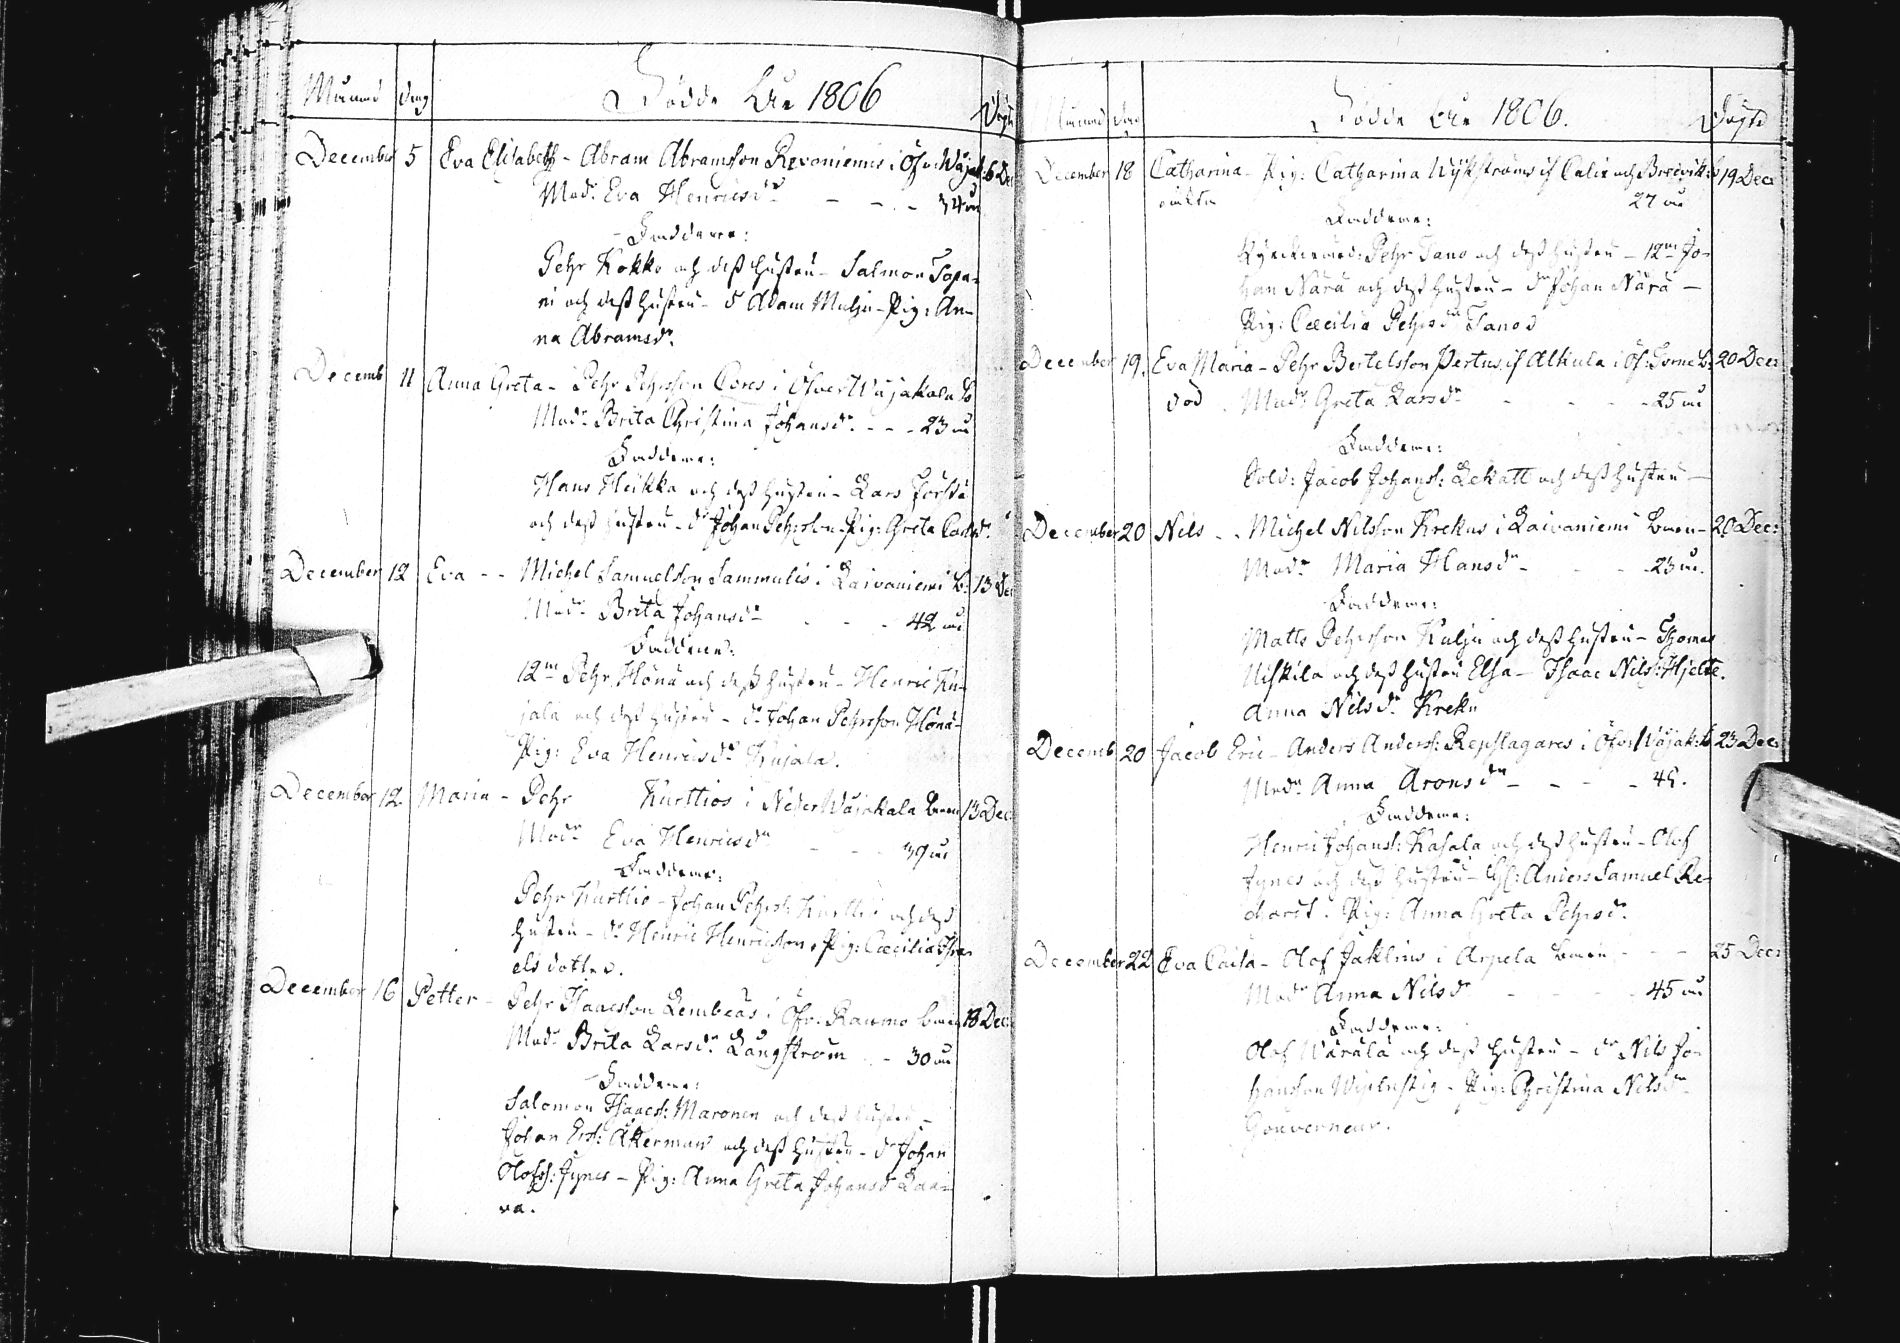 Månad Dag Födde År 1806 Döpte
December 5 Eva Elisabeth - Abram Abramsson Revoniemis i Öfv. Wojak: 6 De
Mod: Eva Henricsdr - - - 34 år
Faddrar:
Pehr Kokko och dess hustru - Salmon Topa-
ri och dess hustru - d Adam Malju - Pig: An-
na Abramsdr
Decemb 11 Anna Greta - Pehr Pehrsson Cores i Öfver Wojakala b
Modr Brita Christina Johansdr - - - 23 år
Faddrar:
Hans Heikka och dess hustru - Lars
och dess hustru - dr Johan Pehrsson - Pig: Greta
December 12 Eva - - Michel Samuelsson Sammulis i Laivaniemi b: 13 De
Modr Brita Johansdr - - - 42 år
Faddrar:
12m Pehr Hönä och dess hustru - Henric Ku-
jala och dess hustru - dr Johan Pehrsson Hönä -
Pig: Eva Henricsdr Kujala.
December 12 Maria - Pehr Kurttios i Neder Wojakala byen 13 Dec:
Modr Eva Henricsdr - - - 39 år
Faddrar:
Pehr Kurttio - Johan Pehrss: Kurttio och dess
hustru - dr Henric Henricsson, Pig: Cæcilia Isra-
elsdotter.
December 16 Petter - Pehr Isaacsson Lembeas i Öfv. Raumo byen 18 Dec:
Modr Brita Larsdr Långström - - 30 år
Faddrar:
Salomon Isaacss: Maronen och dess hustru -
Johan Erss: Åkerman och dess hustru - dr Johan
Olofss: Jynes - Pig: Anna Greta Johansdr Laa-
va.
Månad Dag Födde År 1806. Döpte
December 18 Catharina - Pig: Catharina Nykströms if Calix och Bredvik: 19 Dec:
oäkta 27 år
Faddrar:
Kyrkovärd: Pehr Tano och dess hustru - 12m Jo-
han Nara och dess hustru - dr Johan Nara -
Pig: Cæcilia Pehrsdr Tano
December 19. Eva Maria - Pehr Bertelsson Pertus if Alkula i Öf: Torne b: 20 Dec:
död Modr Greta Larsdr - - - 25 år
Faddrar:
Sold: Jacob Johanss: Lekatt och dess hustru -
December 20 Nils - - Michel Nilsson Krekus i Laivaniemi byen - 20 Dec:
Modr Maria Hansdr - - - 23 år.
Faddrar:
Matts Pehrsson Kalju och dess hustru - Thomas
Niskila och dess hustru Elsa - Isaac Nilss: Hjelte.
Anna Nilsdr Kreku
Decemb 20 Jacob Eric - Anders Anderss: Repslagares i Öfv: Wojak: b 23 Dec:
Modr Anna Aronsdr - - - 45.
Faddrar:
Henric Johanss: Kasala och dess hustru - Olof
Jynes och dess hustru - Anders Samuel
Pig: Anna Greta Pehrsdr.
December 22 Eva Caisa - Olof Jaklins i Arpela byen - - - 25 Dec:
Modr Anna Nilsdr - - - 45 år
Faddrar:
Olof Wärälä och dess hustru - dr Nils Jo-
hansson - Pig: Christina Nilsdr
Gouverneur.